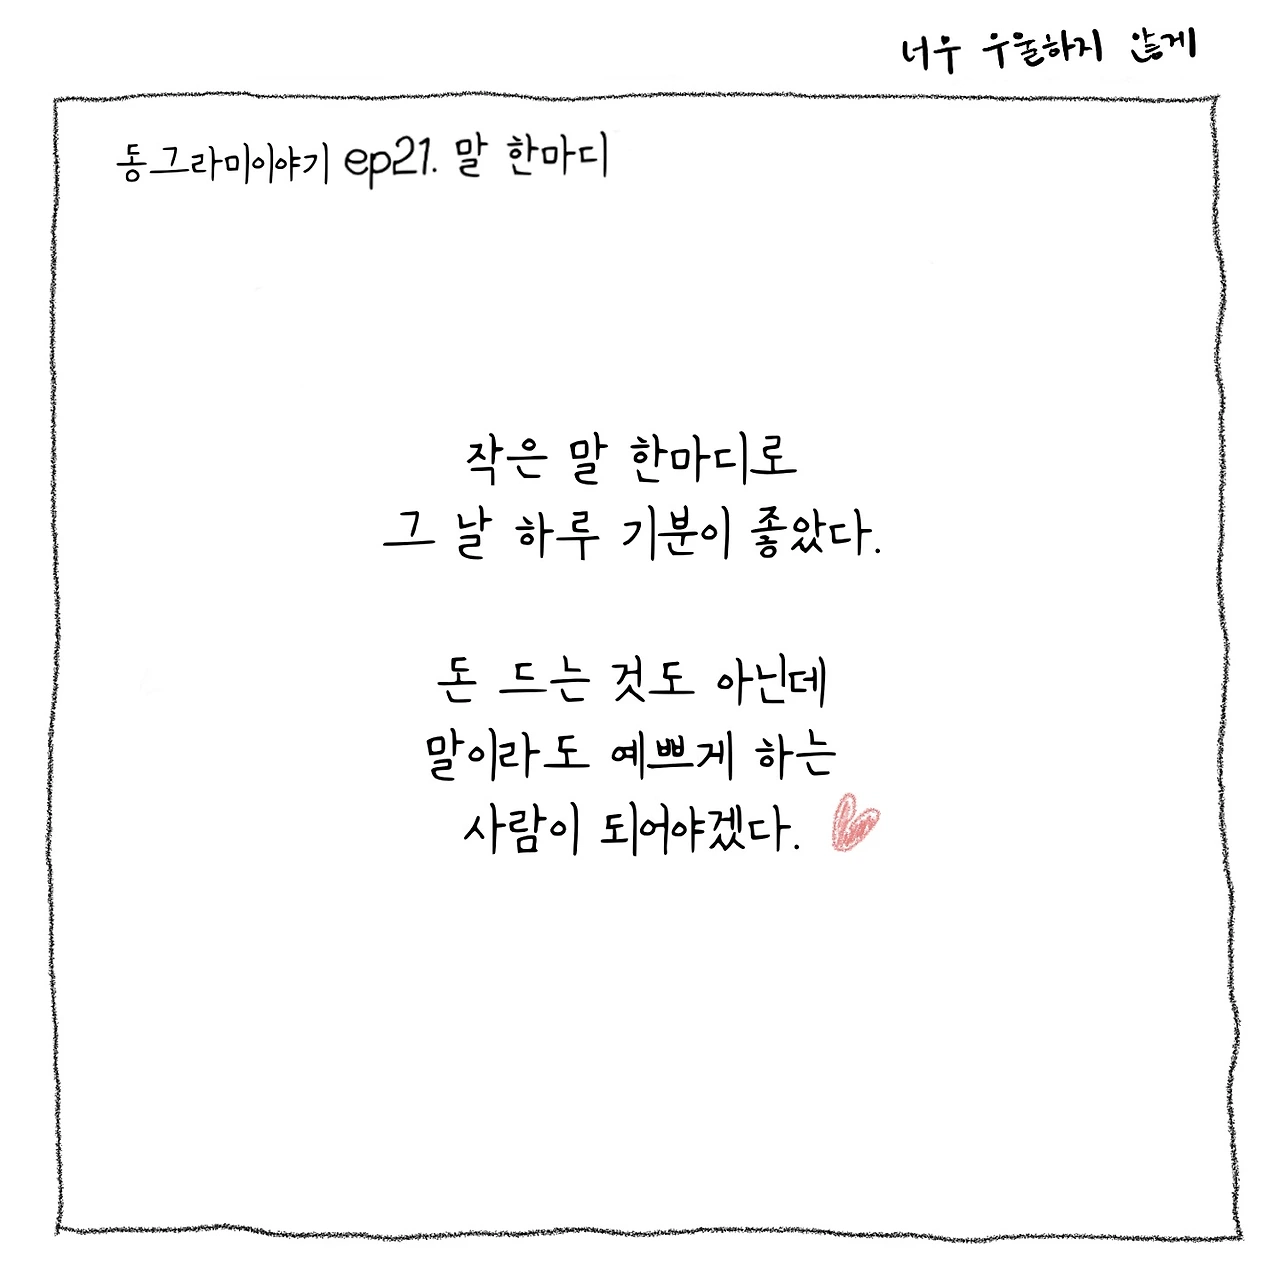 너우 우울하지 않게
동그라미이야기 ep21. 말 한마디
작은 말 한마디로
그 날 하루 기분이 좋았다.
돈 드는 것도 아닌데
말이라도 예쁘게 하는
사람이 되어야겠다.